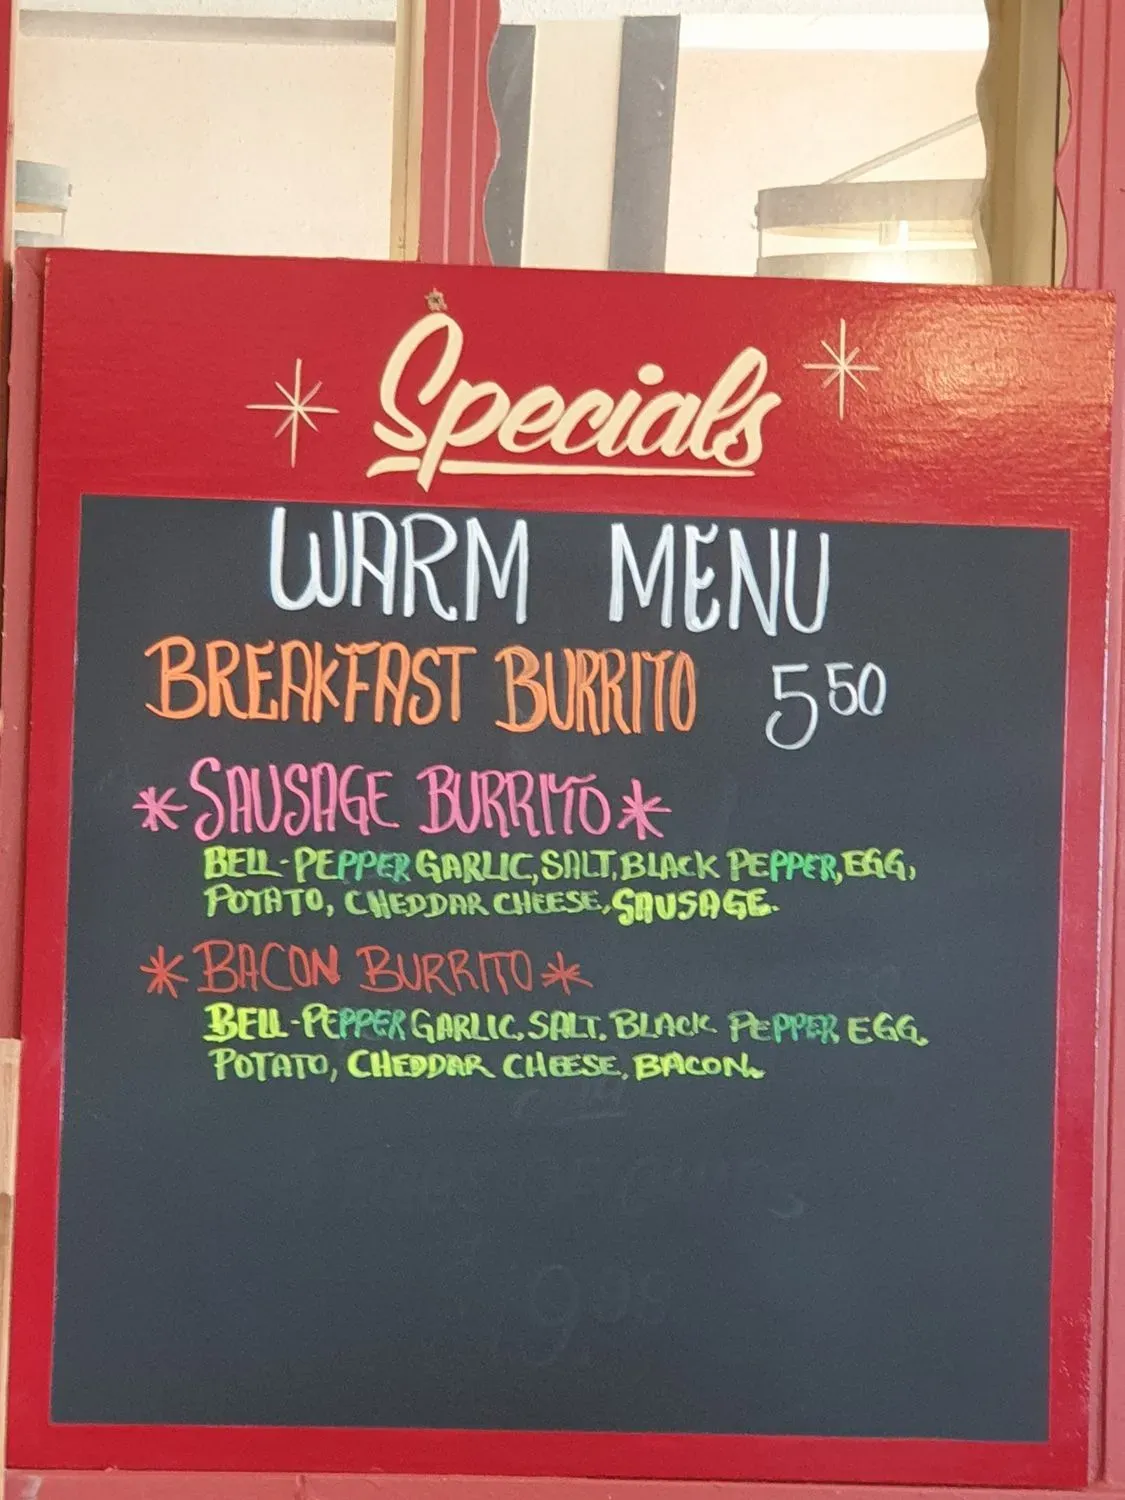 Specials
WARM MENU
BREAKFAST BURRITO 5 50
*SAUSAGE BURRITO*
BELL-PEPPER GARLIC, SALT, BLACK PEPPER, EGG,
POTATO, CHEDDAR CHEESE, SAUSAGE.
*BACON BURRITO*
BELL-PEPPER GARLIC, SALT. BLACK PEPPER EGG,
POTATO, CHEDDAR CHEESE. BACON.